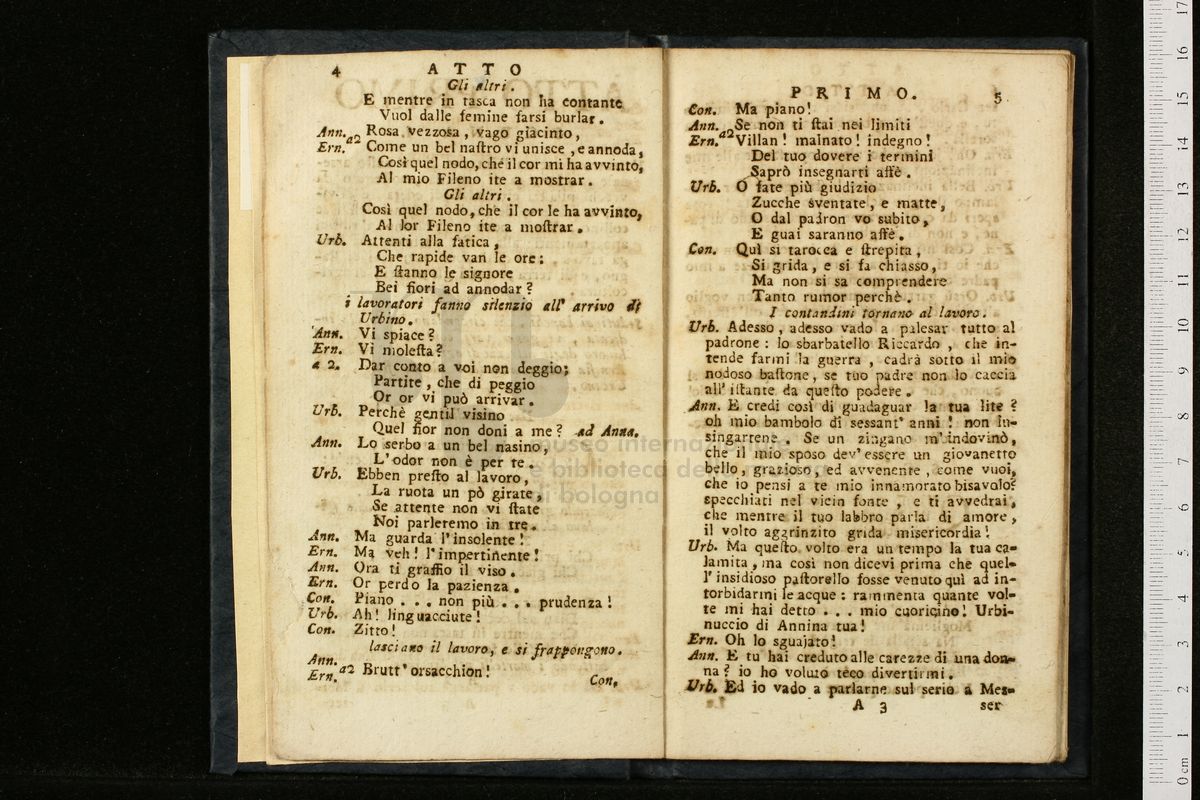 4 ATTO
Gli altri.
E mentre in tasca non ha contante
Vuol dalle femine farsi burlar.
Ann. a2 Rosa vezzosa, vago giacinto,
Ern. Come un bel nastro vi unisce, e annoda,
Così quel nodo, che il cor mi ha avvinto,
Al mio Fileno ite a mostrar.
Gli altri.
Così quel nodo, che il cor le ha avvinto,
Al lor Fileno ite a mostrar.
Urb. Attenti alla fatica,
Che rapide van le ore:
E stanno le signore
Bei fiori ad annodar?
i lavoratori fanno silenzio all' arrivo di
Urbino.
Ann. Vi spiace?
Ern. Vi molesta?
a 2. Dar conto a voi non deggio:
Partite, che di peggio
Or or vi può arrivar.
Urb. Perchè gentil visino
Quel fior non doni a me? ad Anna.
Ann. Lo serbo a un bel nasino,
L'odor non è per te.
Urb. Ebben presto al lavoro,
La ruota un pò girate,
Se attente non vi state
Noi parleremo in tre.
Ann. Ma guarda l'insolente!
Ern. Ma veh! l'impertinente!
Ann. Ora ti graffio il viso.
Ern. Or perdo la pazienza.
Con. Piano . . . non più . . . prudenza!
Urb. Ah! linguacciute!
Con. Zitto!
lasciano il lavoro, e si frappongono.
Ann. a2 Brutt' orsacchion!
Ern.
Con.
PRIMO. 5
Con. Ma piano!
Ann. a2 Se non ti stai nei limiti
Ern. Villan! malnato! indegno!
Del tuo dovere i termini
Saprò insegnarti affè.
Urb. O fate più giudizio
Zucche sventate, e matte,
O dal padron vo subito,
E guai saranno affè.
Con. Quì si tarocca e strepita,
Si grida, e si fa chiasso,
Ma non si sa comprendere
Tanto rumor perchè.
I contandini tornano al lavoro.
Urb. Adesso, adesso vado a palesar tutto al
padrone: lo sbarbatello Riccardo, che in-
tende farmi la guerra, cadrà sotto il mio
nodoso bastone, se tuo padre non lo caccia
all' istante da questo podere.
Ann. E credi così di guadaguar la tua lite?
oh mio bambolo di sessant' anni! non lu-
singartene. Se un zingano m'indovinò,
che il mio sposo dev' essere un giovanetto
bello, grazioso, ed avvenente, come vuoi,
che io pensi a te mio innamorato bisavolo?
specchiati nel vicin fonte, e ti avvedrai,
che mentre il tuo labbro parla di amore,
il volto aggrinzito grida misericordia!
Urb. Ma questo volto era un tempo la tua ca-
lamita, ma così non dicevi prima che quel-
l'insidioso pastorello fosse venuto quì ad in-
torbidarmi le acque: rammenta quante vol-
te mi hai detto . . . mio cuoricino! Urbi-
nuccio di Annina tua!
Ern. Oh lo sguajato!
Ann. E tu hai creduto alle carezze di una don-
na? io ho voluto teco divertirmi.
Urb. Ed io vado a parlarne sul serio a Mes-
A 3 ser
museo internazionale
e biblioteca della musica
di bologna
0 cm 1 2 3 4 5 6 7 8 9 10 11 12 13 14 15 16 17